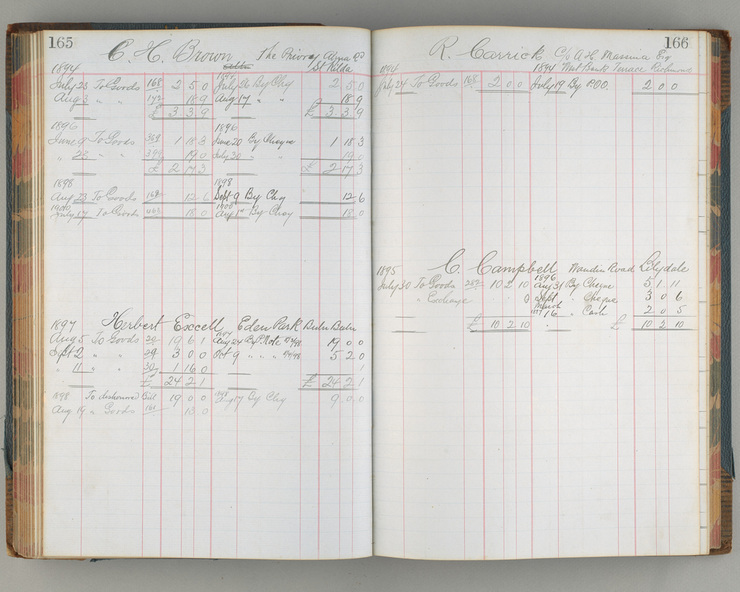 165
C. H. Brown The Priory Alma Rd
St Kilda
1894
July 25 To Goods 168 2 5 0 July 26 By Chq 2 5 0
Aug 3 " " 18 9 Aug 17 " " 18 9
£ 3 3 9 £ 3 3 9
1896 1896
June 9 To Goods 1 18 3 June 20 By Cheque 1 18 3
" 23 " " 19 0 July 30 " " 19 0
£ 2 17 3 £ 2 17 3
1898 1898
Aug 23 To Goods 168 12 6 Sept 9 By Chq 12 6
1900 1900
July 17 To Goods 18 0 Aug 1st By Chq 18 0
1897 Herbert Excell Eden Park
Aug 5 To Goods 19 6 1 Aug 24 By P. Note 19 0 0
Sept 2 " " 29 3 0 0 Oct 9 " " " 5 2 0
" 11 " " 1 16 0 1
£ 24 2 1 £ 24 2 1
1898 To dishonored Bill 19 0 0 By Chq 9 0 0
Aug 19 " Goods 13 0
166
R. Carrick C/o A. H. Massina Esq
1894 1894 Terrace Richmond
July 24 To Goods 168 2 0 0 July 19 By P.O.O. 2 0 0
1895 C. Campbell Wandin Road Lilydale
1896
July 30 To Goods 10 2 10 Aug 31 By Cheque 5 1 11
" Exchange 0 Sept " Cheque 3 0 6
March
16 " Cash 2 0 5
£ 10 2 10 £ 10 2 10